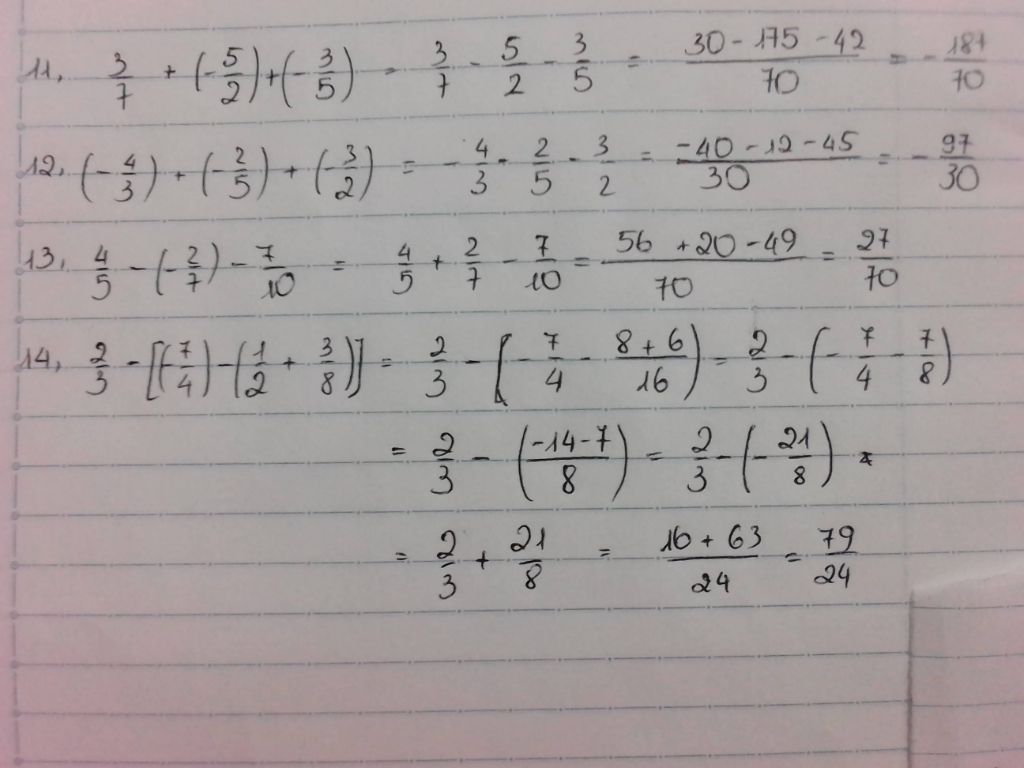 11, 3/7 + (-5/2) + (-3/5) = 3/7 - 5/2 - 3/5 = (30 - 175 - 42)/70 = -187/70
12, (-4/3) + (-2/5) + (-3/2) = -4/3 - 2/5 - 3/2 = (-40 - 12 - 45)/30 = -97/30
13, 4/5 - (-2/7) - 7/10 = 4/5 + 2/7 - 7/10 = (56 + 20 - 49)/70 = 27/70
14, 2/3 - [(-7/4) - (1/2 + 3/8)] = 2/3 - [-7/4 - (8 + 6)/16) = 2/3 - (-7/4 - 7/8)
= 2/3 - ((-14 - 7)/8) = 2/3 - (-21/8)
= 2/3 + 21/8 = (16 + 63)/24 = 79/24